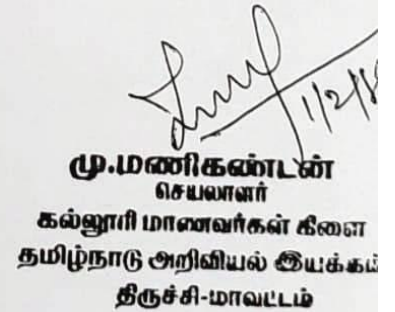 1/2/
மு.மணிகண்டன்
செயலாளர்
கல்லூரி மாணவர்கள் கிளை
தமிழ்நாடு அறிவியல் இயக்கம்
திருச்சி-மாவட்டம்